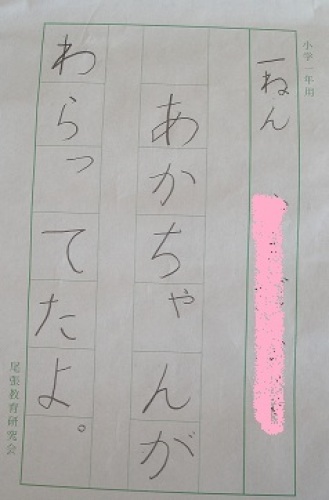 小学一年用
一ねん
あかちゃんが
わらってたよ。
尾張教育研究会